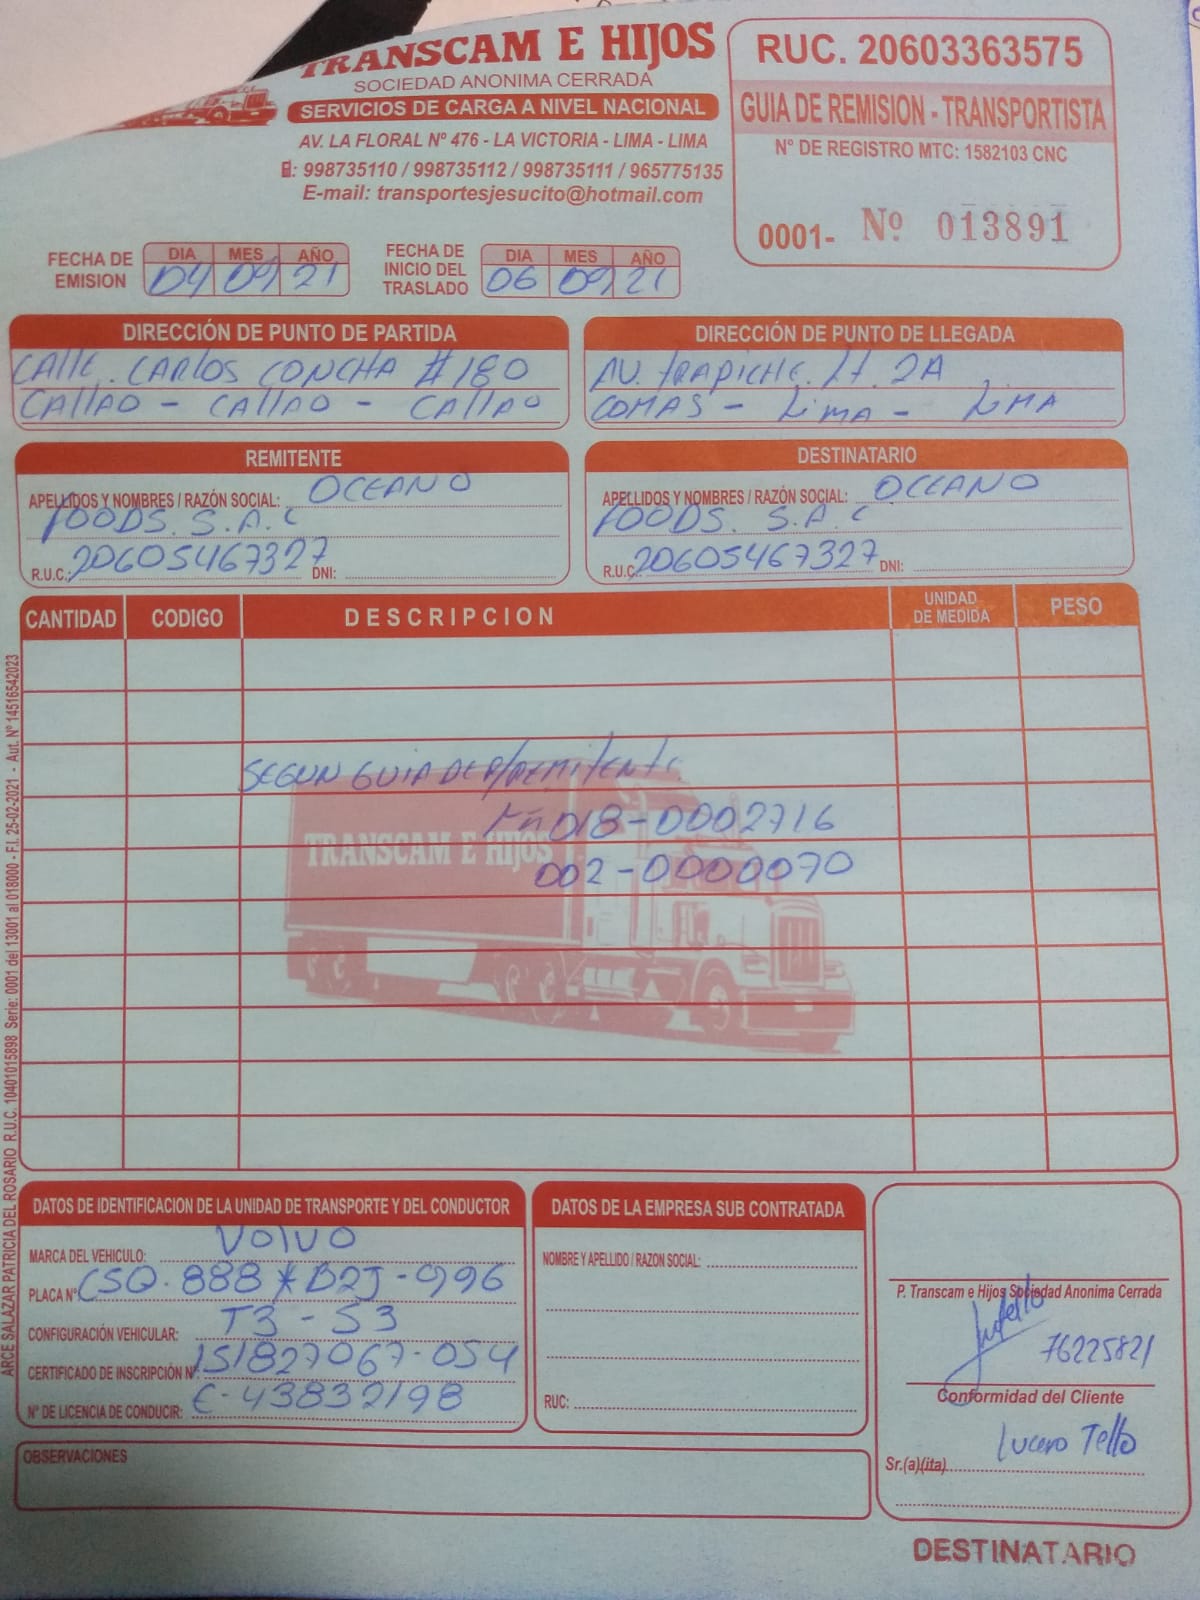 TRANSCAM E HIJOS
SOCIEDAD ANONIMA CERRADA
SERVICIOS DE CARGA A NIVEL NACIONAL
AV. LA FLORAL Nº 476 - LA VICTORIA - LIMA - LIMA
: 998735110 / 998735112 / 998735111 / 965775135
E-mail: transportesjesucito@hotmail.com
RUC. 20603363575
GUIA DE REMISION - TRANSPORTISTA
N° DE REGISTRO MTC: 1582103 CNC
0001- Nº 013891
FECHA DE EMISION DIA MES AÑO
04 09 21
FECHA DE INICIO DEL TRASLADO DIA MES AÑO
06 09 21
DIRECCIÓN DE PUNTO DE PARTIDA
CALLE. CARLOS CONCHA #180
CALLAO - CALLAO - CALLAO
DIRECCIÓN DE PUNTO DE LLEGADA
AV. TRAPICHE. LT. 2A
COMAS - LIMA - LIMA
REMITENTE
APELLIDOS Y NOMBRES / RAZÓN SOCIAL: OCEANO
FOODS. S.A.C
R.U.C.: 20605467327 DNI:
DESTINATARIO
APELLIDOS Y NOMBRES / RAZÓN SOCIAL: OCEANO
FOODS. S.A.C
R.U.C.: 20605467327 DNI:
CANTIDAD CODIGO DESCRIPCION UNIDAD DE MEDIDA PESO
SEGUN GUIA DE REMITENTE
018-0002716
TRANSCAM E HIJOS
002-0000070
ARCE SALAZAR PATRICIA DEL ROSARIO R.U.C. 10401015898 Serie: 0001 del 13001 al 018000 - F.I. 25-02-2021 - Aut. Nº 14516542023
DATOS DE IDENTIFICACION DE LA UNIDAD DE TRANSPORTE Y DEL CONDUCTOR
MARCA DEL VEHICULO: VOLVO
PLACA N° CSQ-888 * D2J-996
CONFIGURACIÓN VEHICULAR: T3 - S3
CERTIFICADO DE INSCRIPCIÓN N°: 151827067-054
N° DE LICENCIA DE CONDUCIR: C-43832198
DATOS DE LA EMPRESA SUB CONTRATADA
NOMBRE Y APELLIDO / RAZON SOCIAL:
RUC:
P. Transcam e Hijos Sociedad Anonima Cerrada
76225821
Conformidad del Cliente
Lucero Tello
Sr.(a)(ita)
OBSERVACIONES
DESTINATARIO